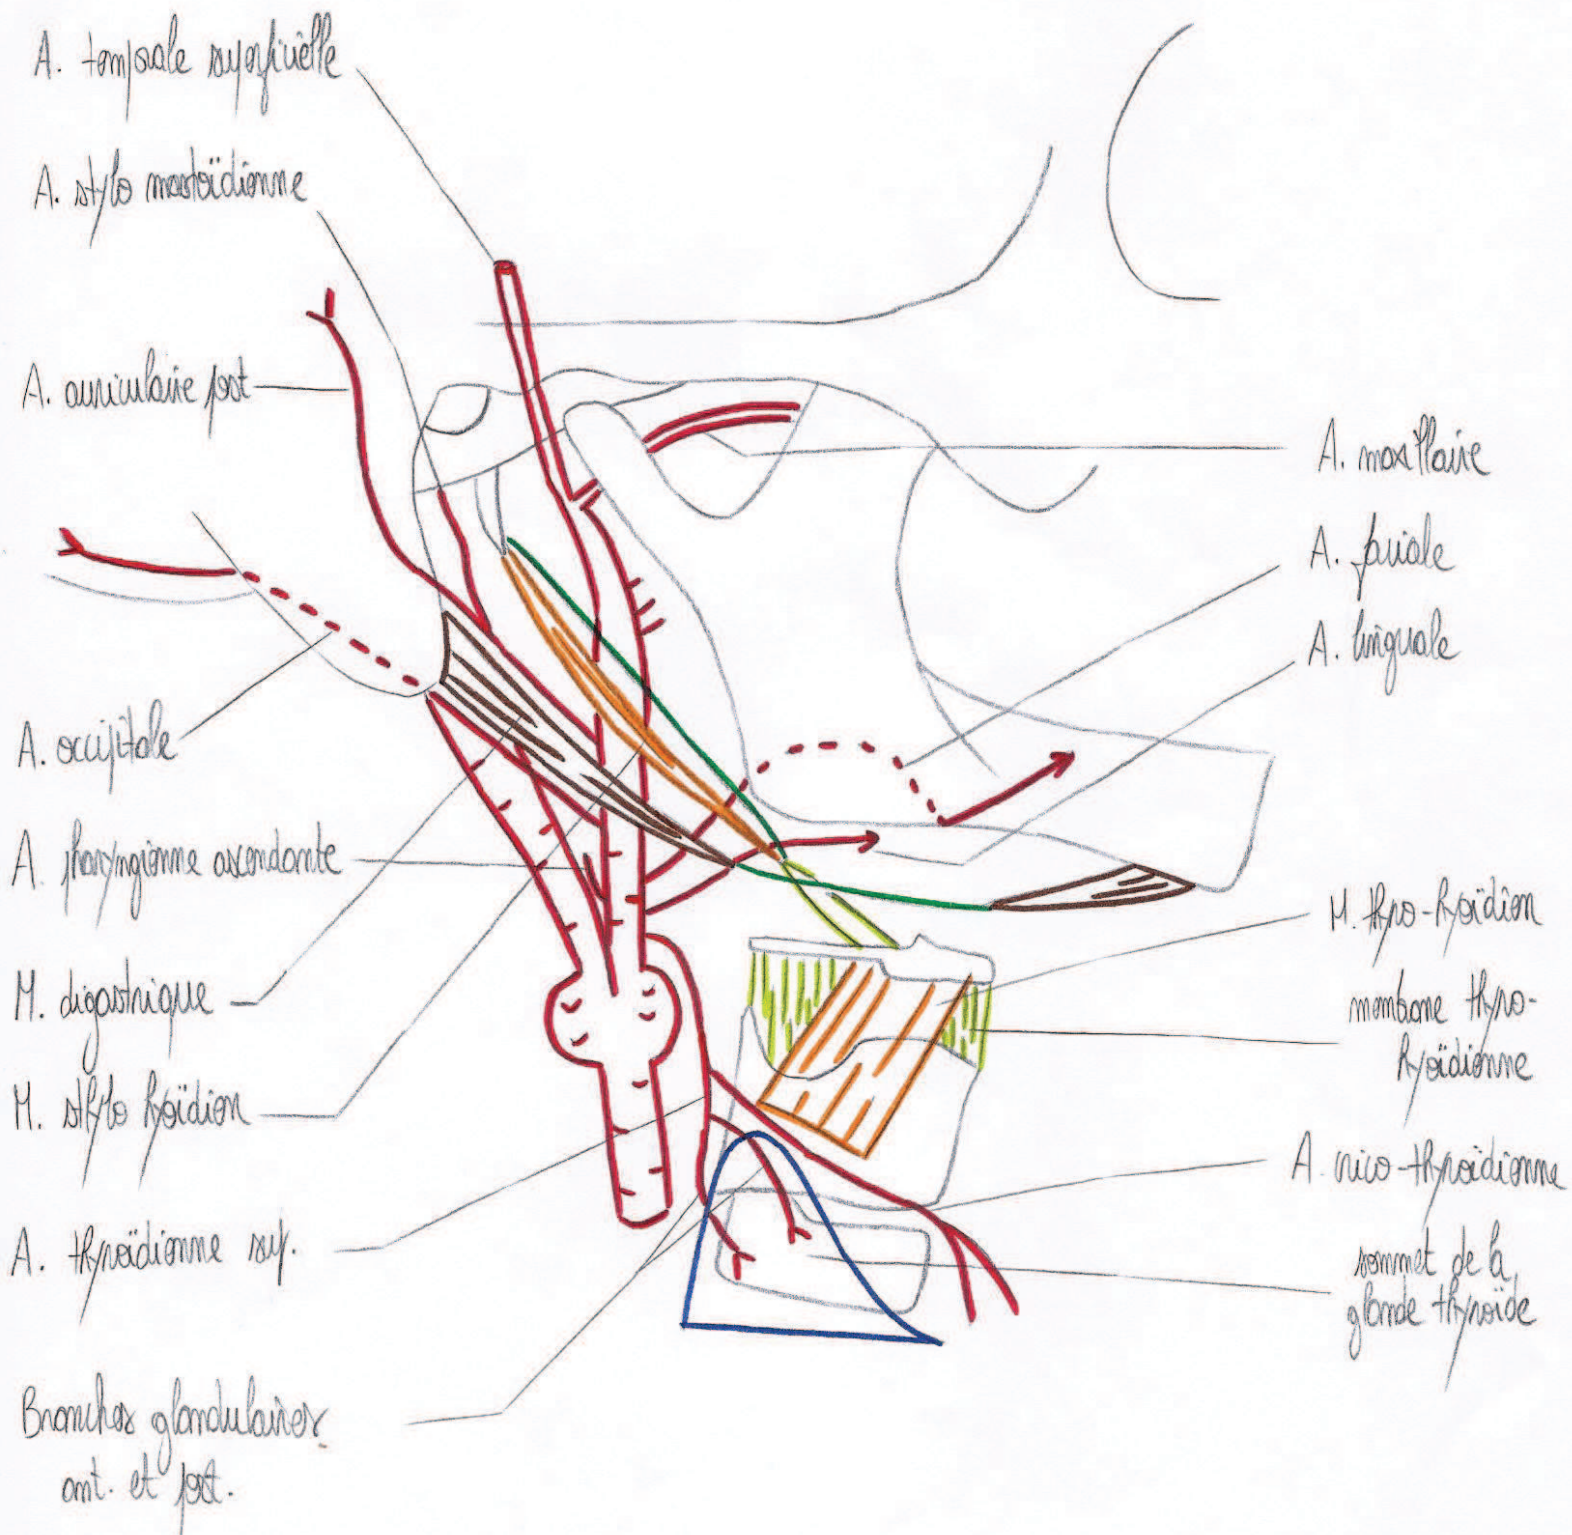 A. temporale superficielle
A. stylo mastoïdienne
A. auriculaire post
A. occipitale
A. pharyngienne ascendante
M. digastrique
M. stylo hyoïdien
A. thyroïdienne sup.
Branches glandulaires
ant. et post.
A. maxillaire
A. faciale
A. linguale
M. thyro-hyoïdien
membane thyro-
hyoïdienne
A. crico-thyroïdienne
sommet de la
glande thyroïde